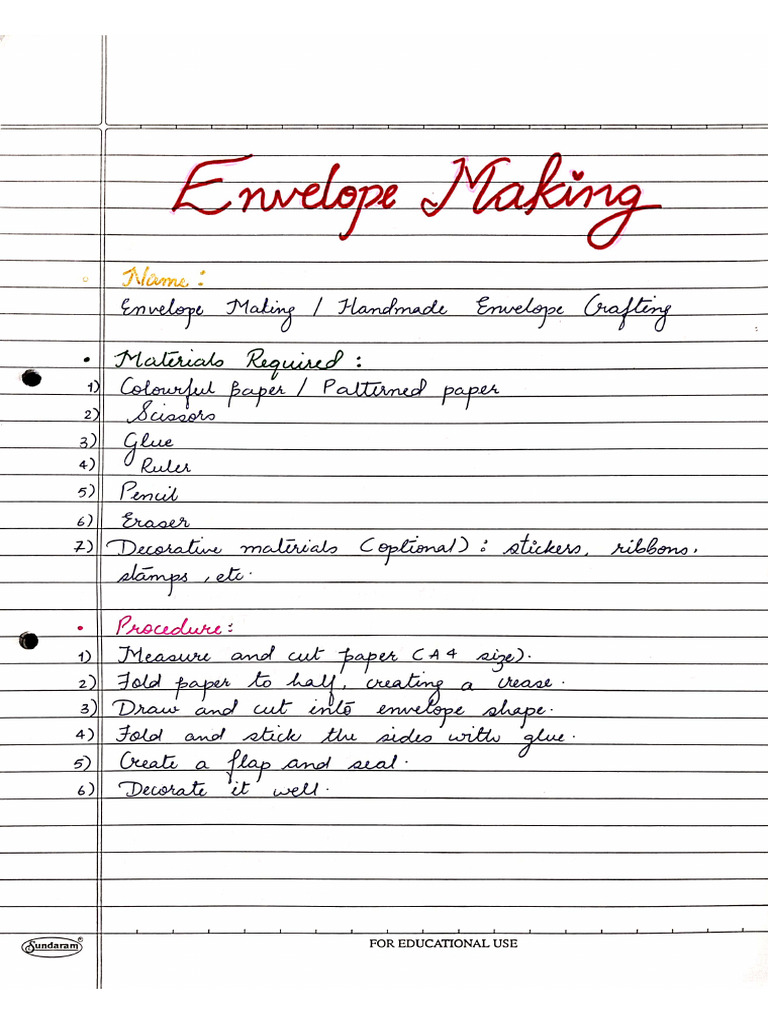 Envelope Making
• Name:
Envelope Making / Handmade Envelope Crafting
• Materials Required:
1) Colourful paper / Patterned paper
2) Scissors
3) Glue
4) Ruler
5) Pencil
6) Eraser
7) Decorative materials (optional): stickers, ribbons,
stamps, etc.
• Procedure:
1) Measure and cut paper (A4 size).
2) Fold paper to half, creating a crease.
3) Draw and cut into envelope shape.
4) Fold and stick the sides with glue.
5) Create a flap and seal.
6) Decorate it well.
Sundaram® FOR EDUCATIONAL USE